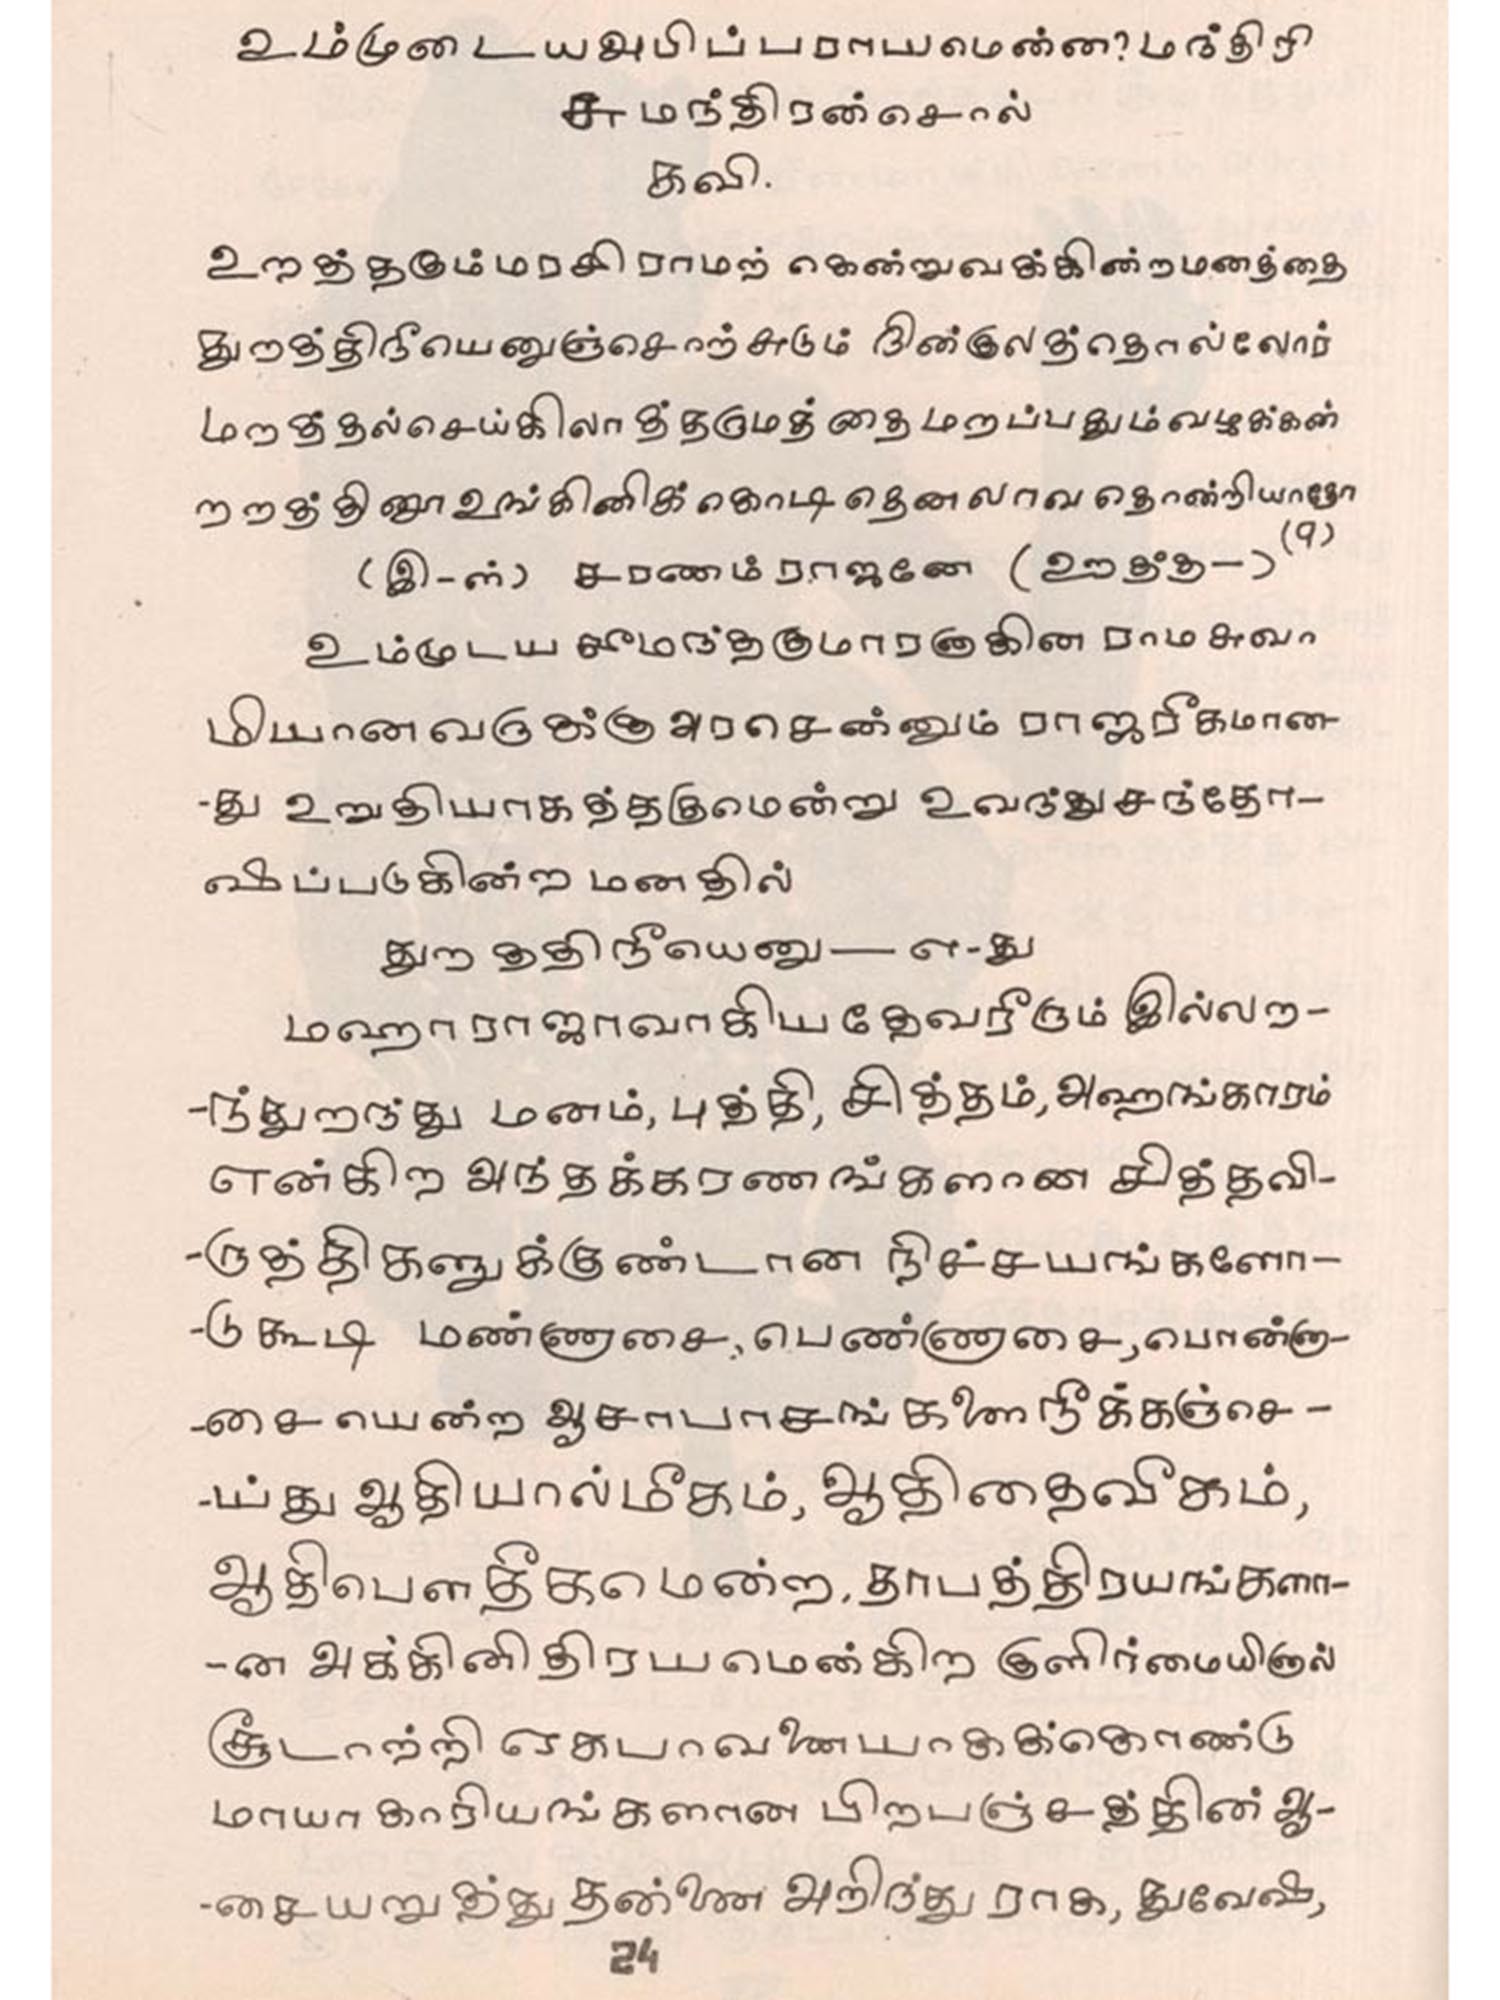 உம்முடையஅபிப்பராயமென்ன? மந்திரி
சுமந்திரன்சொல்
கவி.
உறத்தகும்மரசிராமற் கென்றுவக்கின்றமனத்தை
துறத்திநீயெனுஞ்சொற்சுடும் நின்குலத்தொல்லோர்
மறத்தல்செய்கிலாத்தருமத்தை மறப்பதும்வழக்கன்
றறத்தினூஉங்கினிக்கொடிதெனலாவதொன்றியாதோ
(இ-ள்) சரணம் ராஜனே (உறத்த—) (9)
உம்முடய சீமந்தகுமாரனாகின ராமசுவா
மியானவருக்கு அரசென்னும் ராஜரீகமான-
-து உறுதியாகத்தகுமென்று உவந்துசந்தோ-
ஷிப்படுகின்ற மனதில்
துறத்திநீயெனு — எ-து
மஹாராஜாவாகியதேவரீரும் இல்லற-
-ந்துறந்து மனம், புத்தி, சித்தம், அஹங்காரம்
என்கிற அந்தக்கரணங்களான சித்தவி-
-ருத்திகளுக்குண்டான நிச்சயங்களோ-
-டுகூடி மண்ணாசை, பெண்ணாசை, பொன்னா-
-சையென்ற ஆசாபாசங்களைநீக்கஞ்செ-
-ய்து ஆதியால்மீகம், ஆதிதைவீகம்,
ஆதிபௌதீகமென்ற, தாபத்திரயங்களா-
-ன அக்கினிதிரயமென்கிற குளிர்மையினால்
சூடாற்றி ஏகபாவனையாகக்கொண்டு
மாயாகாரியங்களான பிறபஞ்சத்தின் ஆ-
-சையறுத்து தன்னை அறிந்து ராக, துவேஷ,
24